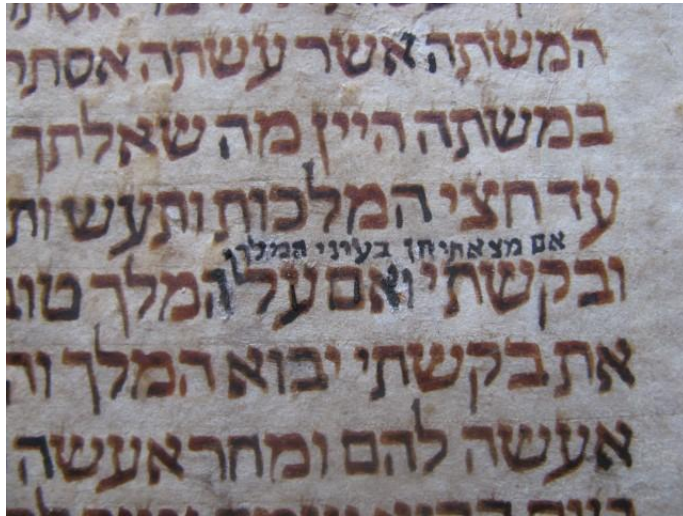 המשתה אשר עשתה אסתר
במשתה היין מה שאלתך
עד חצי המלכות ותעש ות
אם מצאתי חן בעיני המלך
ובקשתי ואם על המלך טוב
את בקשתי יבוא המלך וה
אעשה להם ומחר אעשה